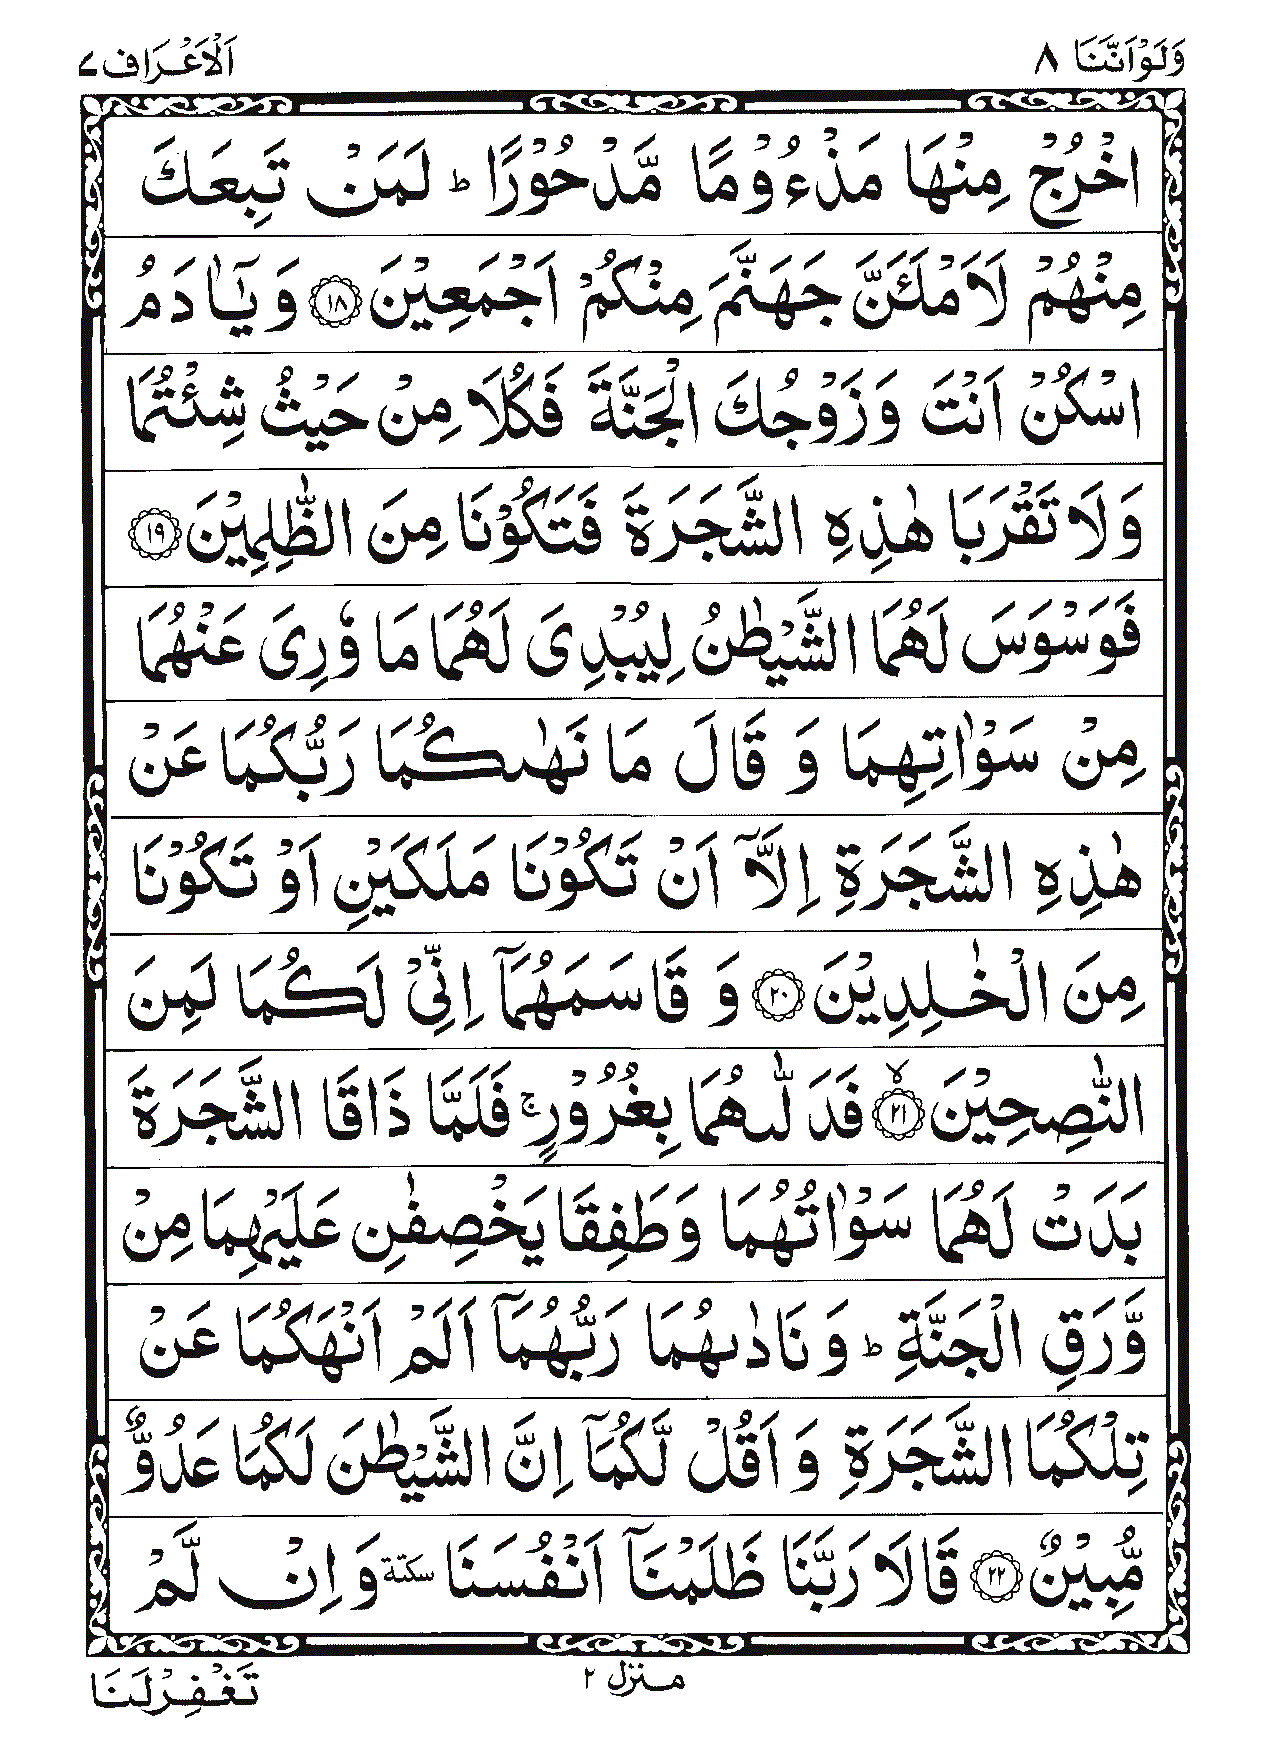 وَلَوْاَنَّنَا ٨
اَلْاَعْرَاف ٧
اخْرُجْ مِنْهَا مَذْءُوْمًا مَّدْحُوْرًا ؕ لَمَنْ تَبِعَكَ
مِنْهُمْ لَاَمْلَـَٔنَّ جَهَنَّمَ مِنْكُمْ اَجْمَعِيْنَ ﴿١٨﴾ وَ يٰۤاٰدَمُ
اسْكُنْ اَنْتَ وَزَوْجُكَ الْجَنَّةَ فَكُلَا مِنْ حَيْثُ شِئْتُمَا
وَلَا تَقْرَبَا هٰذِهِ الشَّجَرَةَ فَتَكُوْنَا مِنَ الظّٰلِمِيْنَ ﴿١٩﴾
فَوَسْوَسَ لَهُمَا الشَّيْطٰنُ لِيُبْدِىَ لَهُمَا مَا وٗرِىَ عَنْهُمَا
مِنْ سَوْاٰتِهِمَا وَ قَالَ مَا نَهٰىكُمَا رَبُّكُمَا عَنْ
هٰذِهِ الشَّجَرَةِ اِلَّاۤ اَنْ تَكُوْنَا مَلَكَيْنِ اَوْ تَكُوْنَا
مِنَ الْخٰلِدِيْنَ ﴿٢٠﴾ وَ قَاسَمَهُمَاۤ اِنِّىْ لَكُمَا لَمِنَ
النّٰصِحِيْنَ ۙ﴿٢١﴾ فَدَلّٰىهُمَا بِغُرُوْرٍ ۚ فَلَمَّا ذَاقَا الشَّجَرَةَ
بَدَتْ لَهُمَا سَوْاٰتُهُمَا وَطَفِقَا يَخْصِفٰنِ عَلَيْهِمَا مِنْ
وَّرَقِ الْجَنَّةِ ؕ وَ نَادٰىهُمَا رَبُّهُمَاۤ اَلَمْ اَنْهَكُمَا عَنْ
تِلْكُمَا الشَّجَرَةِ وَ اَقُلْ لَّكُمَاۤ اِنَّ الشَّيْطٰنَ لَكُمَا عَدُوٌّ
مُّبِيْنٌ ﴿٢٢﴾ قَالَا رَبَّنَا ظَلَمْنَاۤ اَنْفُسَنَا سكتة وَ اِنْ لَّمْ
منزل ٢
تَغْفِرْلَنَا